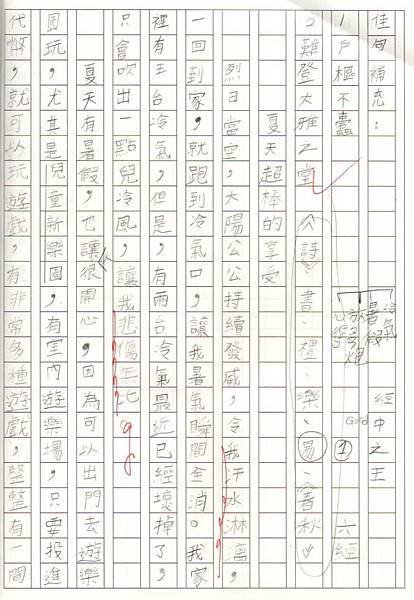 佳句補充：
1戶樞不蠹
2難登大雅之堂
經中之王
Gold ① 六經
《詩》、書、禮、樂、易、《春秋》
冷氣
暑假
放
心
炮
夏天超棒的享受
烈日當空，太陽公公持續發威，令我汗水淋漓，
一回到家，就跑到冷氣口，讓我暑氣瞬間全消。我家
裡有五台冷氣，但是，有兩台冷氣最近已經壞掉了，
只會吹出一點兒冷風，讓我悲傷無比。
夏天有暑假，也讓很開心，因為可以出門去遊樂
園玩，尤其是兒童新樂園，有室內遊樂場，只要投進
代幣，就可以玩遊戲，有非常多種遊戲，整整有一間